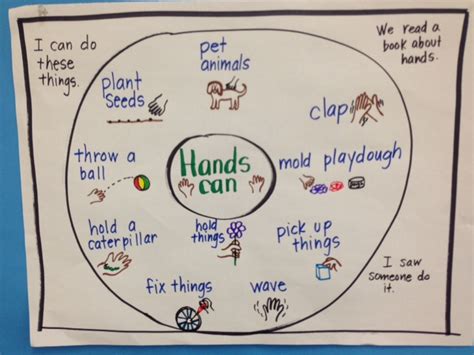 I can do
these
things.
We read a
book about
hands.
pet
animals
plant
seeds
clap
throw a
ball
Hands
can
mold playdough
hold a
caterpillar
hold
things
pick up
things
fix things
wave
I saw
someone do
it.